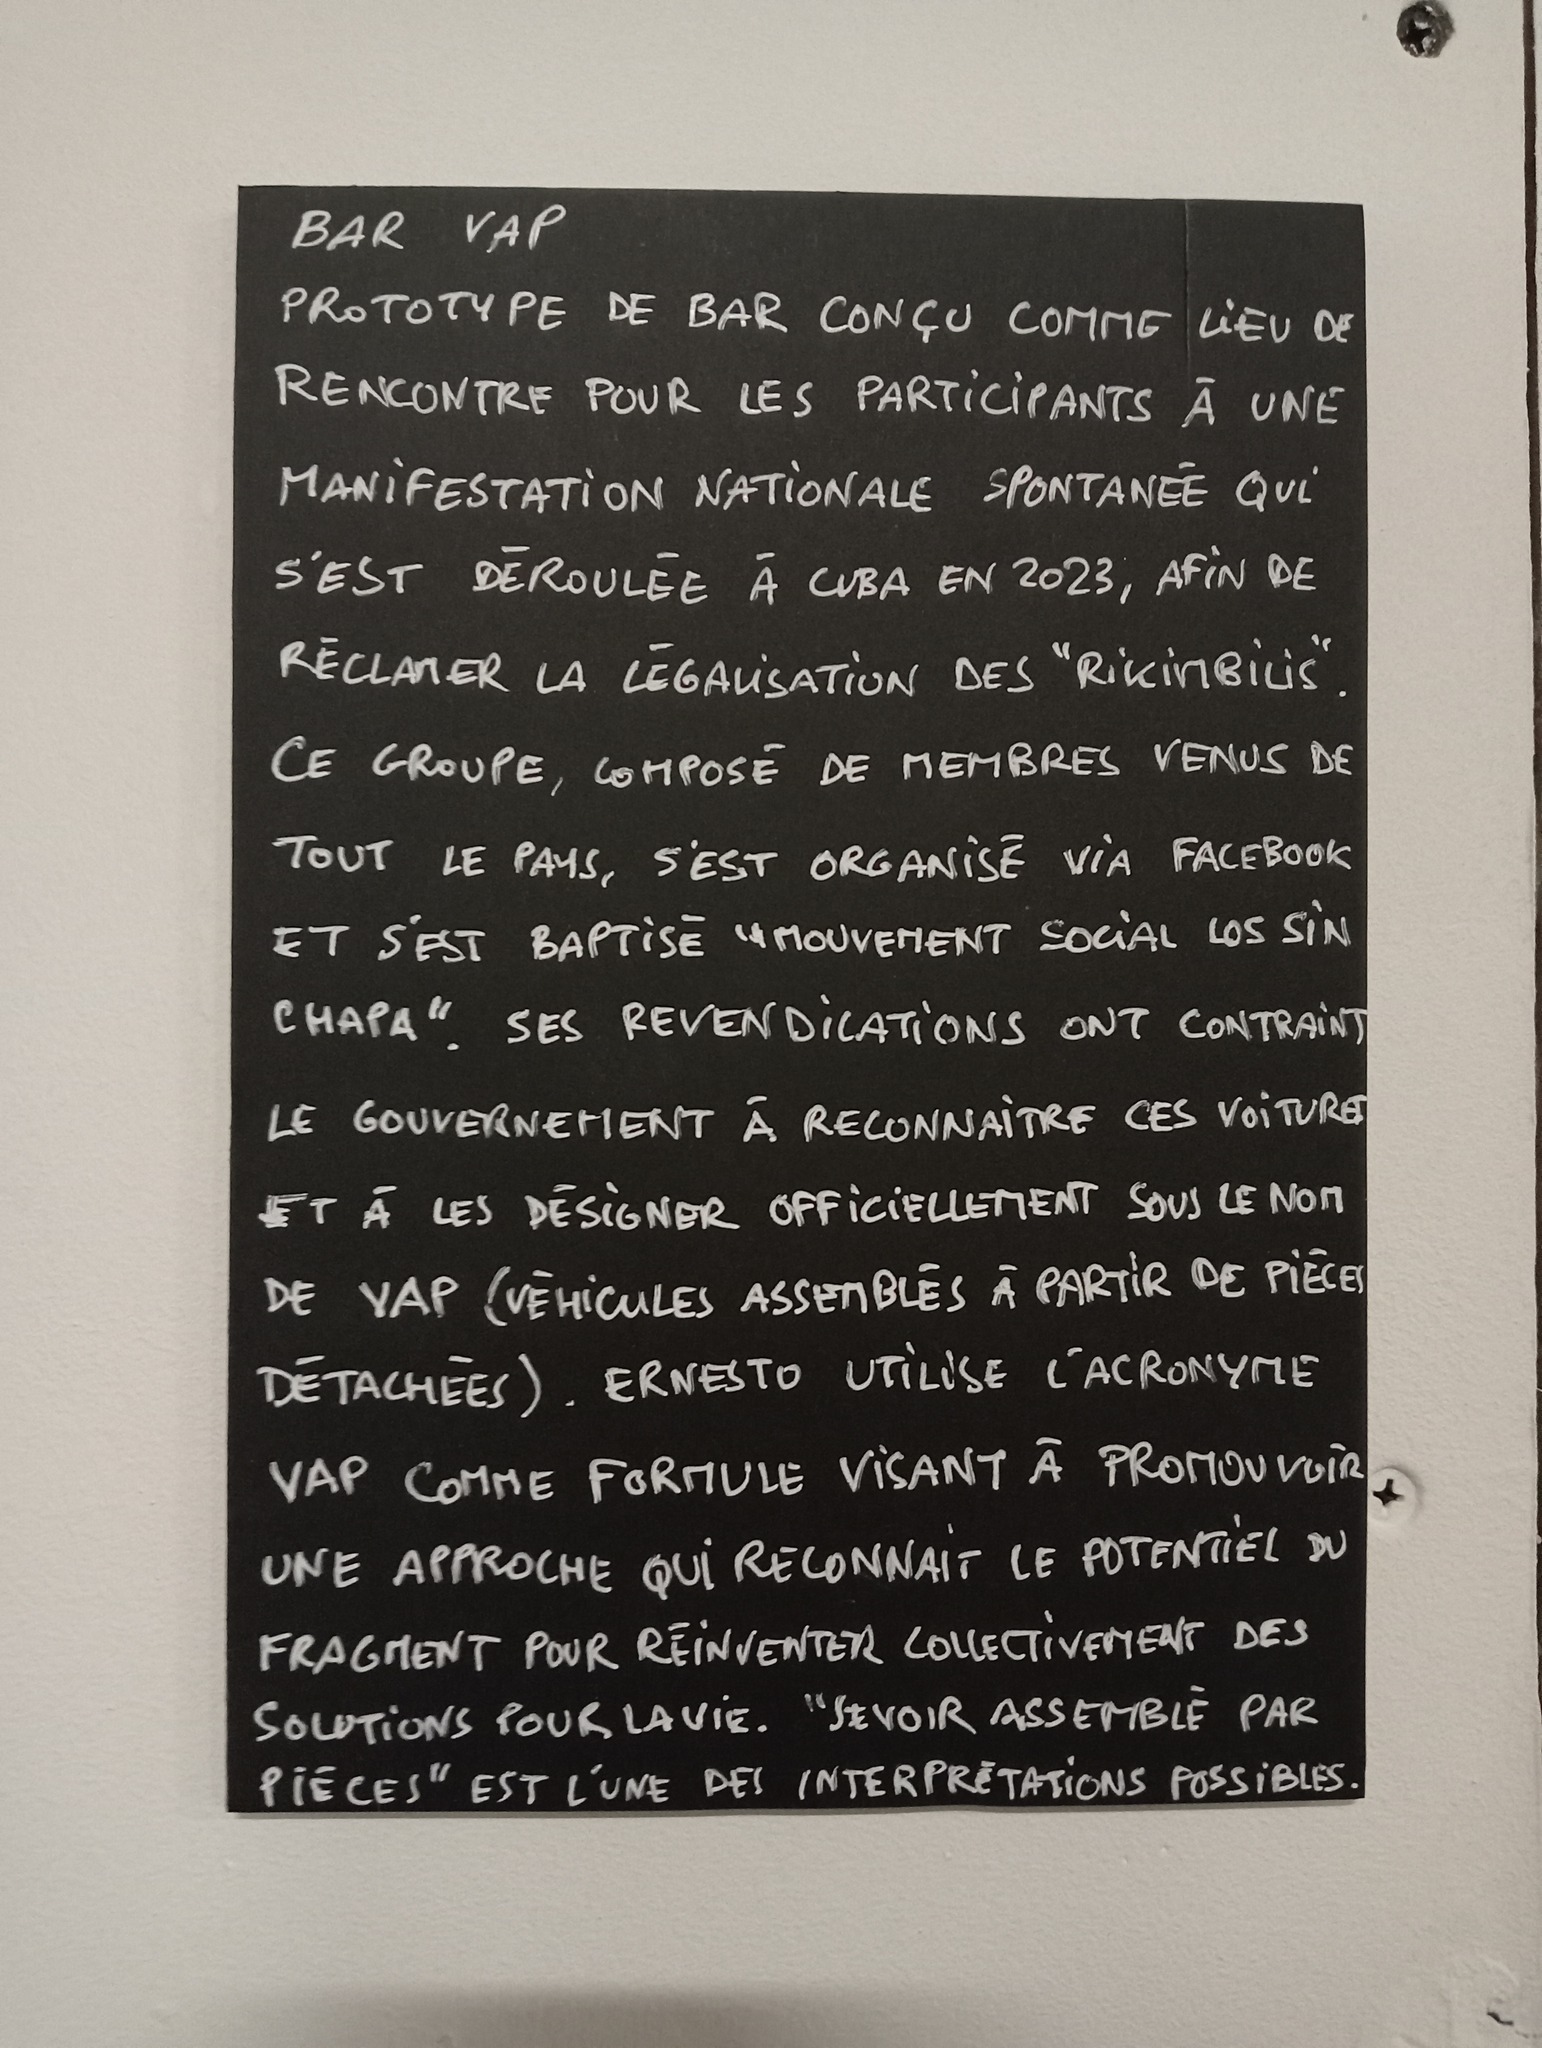 BAR VAP
PROTOTYPE DE BAR CONÇU COMME LIEU DE
RENCONTRE POUR LES PARTICIPANTS À UNE
MANIFESTATION NATIONALE SPONTANÉE QUI
S'EST DÉROULÉE À CUBA EN 2023, AFIN DE
RÉCLAMER LA LÉGALISATION DES "RIKIMBILIS".
CE GROUPE, COMPOSÉ DE MEMBRES VENUS DE
TOUT LE PAYS, S'EST ORGANISÉ VIA FACEBOOK
ET S'EST BAPTISÉ "MOUVEMENT SOCIAL LOS SIN
CHAPA". SES REVENDICATIONS ONT CONTRAINT
LE GOUVERNEMENT À RECONNAITRE CES VOITURES
ET À LES DÉSIGNER OFFICIELLEMENT SOUS LE NOM
DE VAP (VÉHICULES ASSEMBLÉS À PARTIR DE PIÈCES
DÉTACHÉES). ERNESTO UTILISE L'ACRONYME
VAP COMME FORMULE VISANT À PROMOUVOIR
UNE APPROCHE QUI RECONNAIT LE POTENTIEL DU
FRAGMENT POUR RÉINVENTER COLLECTIVEMENT DES
SOLUTIONS POUR LA VIE. "SEVOIR ASSEMBLÉ PAR
PIÈCES" EST L'UNE DES INTERPRÉTATIONS POSSIBLES.